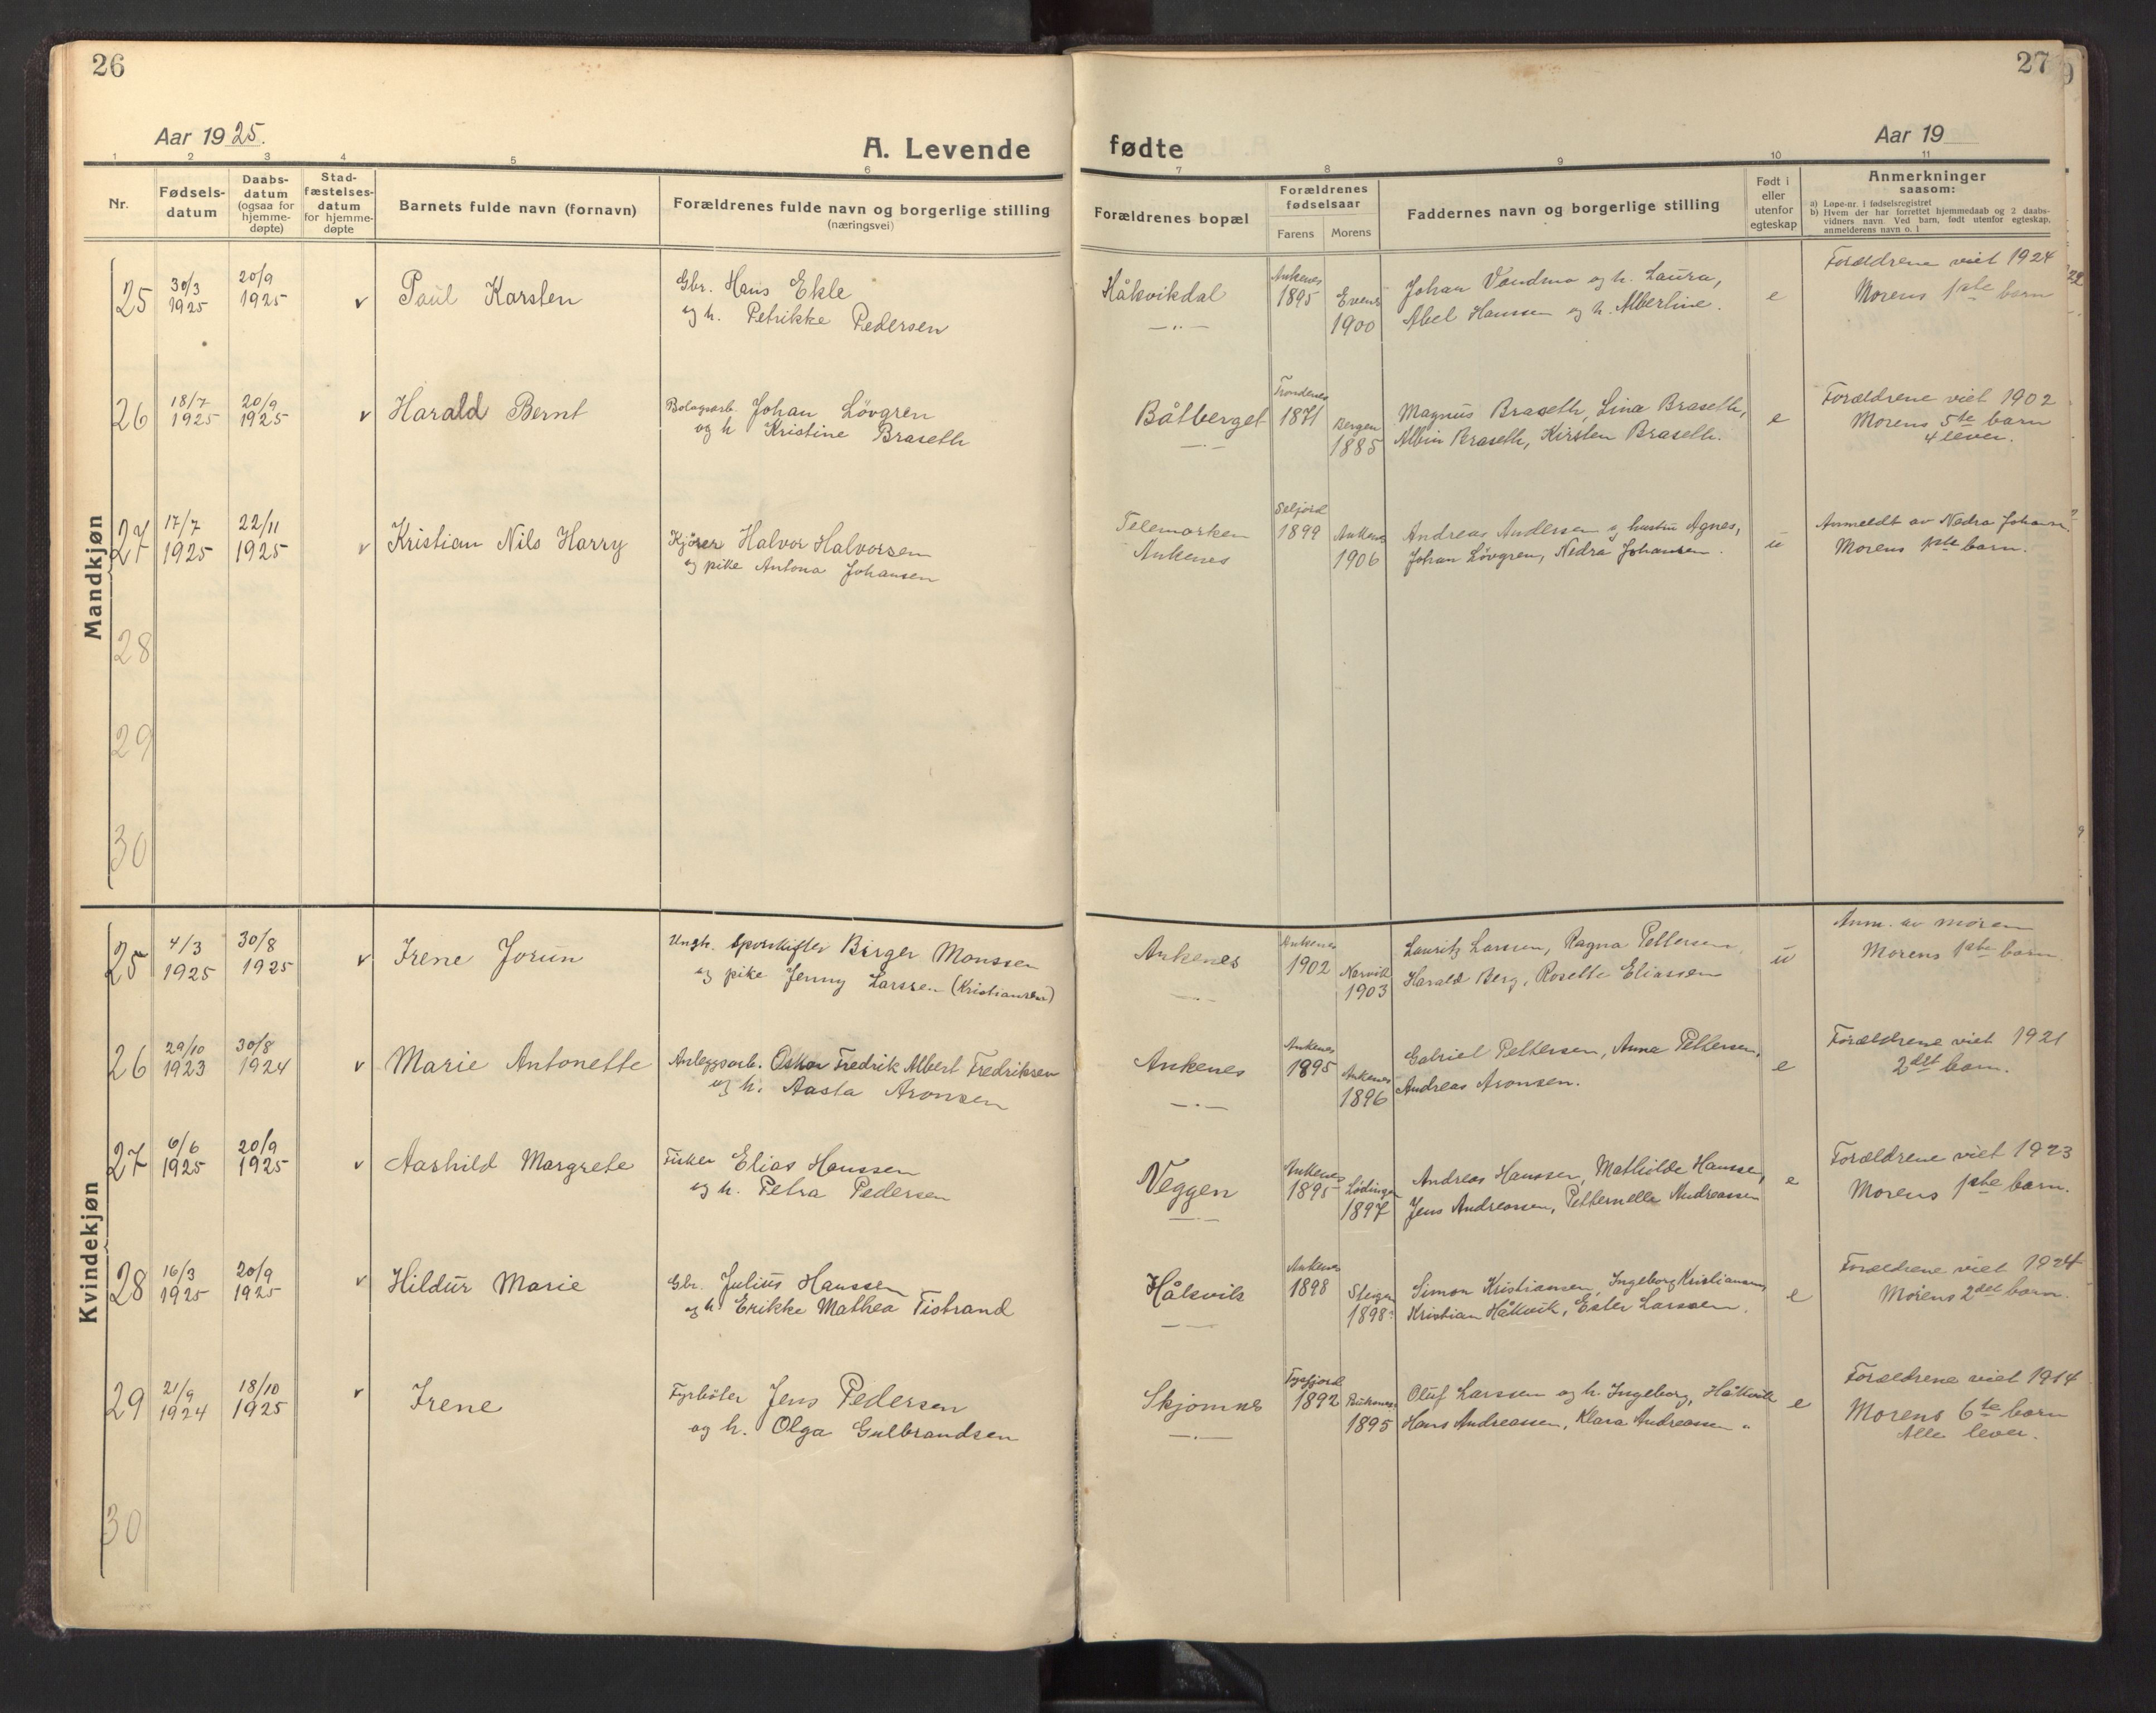 26
Aar 1925.
A. Levende
1 2 3 4 5 6
Nr.
Fødsels-
datum
Daabs-
datum
(ogsaa for
hjemme-
døpte)
Stad-
fæstelses-
datum
for hjemme-
døpte
Barnets fulde navn (fornavn)
Forældrenes fulde navn og borgerlige stilling
(næringsvei)
Mandkjøn
25 30/3 1925 20/9 1925 v Paul Karsten
Gbr. Hans Ekle
og h. Petrikke Pedersen
26 18/7 1925 20/9 1925 v Harald Bernt
Bolagsarb. Johan Lövgren
og h Kristine Braseth
27 17/7 1925 22/11 1925 v Kristian Nils Harry
Kjörer Halvor Halvorsen
og pike Antona Johansen
28
29
30
Kvindekjøn
25 4/3 1925 30/8 1925 v Irene Jorun
Ungk. Sporskifter Birger Monssen
og pike Jenny Larssen (Kristiansen)
26 29/10 1923 30/8 1924 v Marie Antonette
Anleggsarb. Oskar Fredrik Albert Fredriksen
og h. Aasta Aronsen
27 6/6 1925 20/9 1925 v Aashild Margrete
Fisker Elias Hanssen
og h. Petra Pedersen
28 16/3 1925 20/9 1925 v Hildur Marie
Gbr. Julius Hanssen
og h. Erikke Mathea Tistrand
29 21/9 1924 18/10 1925 v Irene
Fyrböter Jens Pedersen
og h. Olga Gulbrandsen
30
27
Aar 19
fødte
7 8 9 10 11
Forældrenes bopæl
Forældrenes
fødselsaar
Farens Morens
Faddernes navn og borgerlige stilling
Født i
eller
utenfor
egteskap
Anmerkninger
saasom:
a) Løpe-nr. i fødselsregistret
b) Hvem der har forrettet hjemmedaab og 2 daabs-
vidners navn. Ved barn, født utenfor egteskap,
anmelderens navn o. l
Håkvikdal
Ankenes 1895 Evenes 1900
Johan Vandmo og h. Laura,
Abel Hanssen og h. Albertine.
e
Forældrene viet 1924
Morens 1ste barn
Båtberget
Trondenes 1871 Bergen 1885
Magnus Braseth, Lina Braseth,
Albin Braseth, Kirsten Braseth.
e
Forældrene viet 1902
Morens 5te barn
4 lever.
Telemarken
Ankenes
Seljord 1899 Ankenes 1906
Andreas Andersen og hustru Agnes,
Johan Lövgren, Nedra Johansen.
u
Anmeldt av Nedra Johansen
Morens 1ste barn.
Ankenes
Ankenes 1902 Narvik 1903
Lauritz Larssen, Ragna Pettersen
Harald Berg, Roselle Eliassen
u
Anm. av moren
Morens 1ste barn
Ankenes
Ankenes 1895 Ankenes 1896
Gabriel Pettersen, Anna Pettersen,
Andreas Aronsen.
e
Forældrene viet 1921
2det barn.
Veggen
Ankenes 1895 Lødingen 1897
Andreas Hanssen, Mathilde Hanssen,
Jens Andreassen, Petternelle Andreassen
e
Forældrene viet 1923
Morens 1ste barn.
Håkvik
Ankenes 1898 Steigen 1898
Simon Kristiansen, Ingeborg Kristiansen,
Kristian Håkvik, Ester Larssen.
e
Forældrene viet 1924
Morens 2det barn.
Skjomnes
Tysfjord 1892 Buksnes 1895
Oluf Larssen og h. Ingeborg, Håkvik
Hans Andreassen, Klara Andreassen "
e
Forældrene viet 1914
Morens 6te barn
Alle lever.